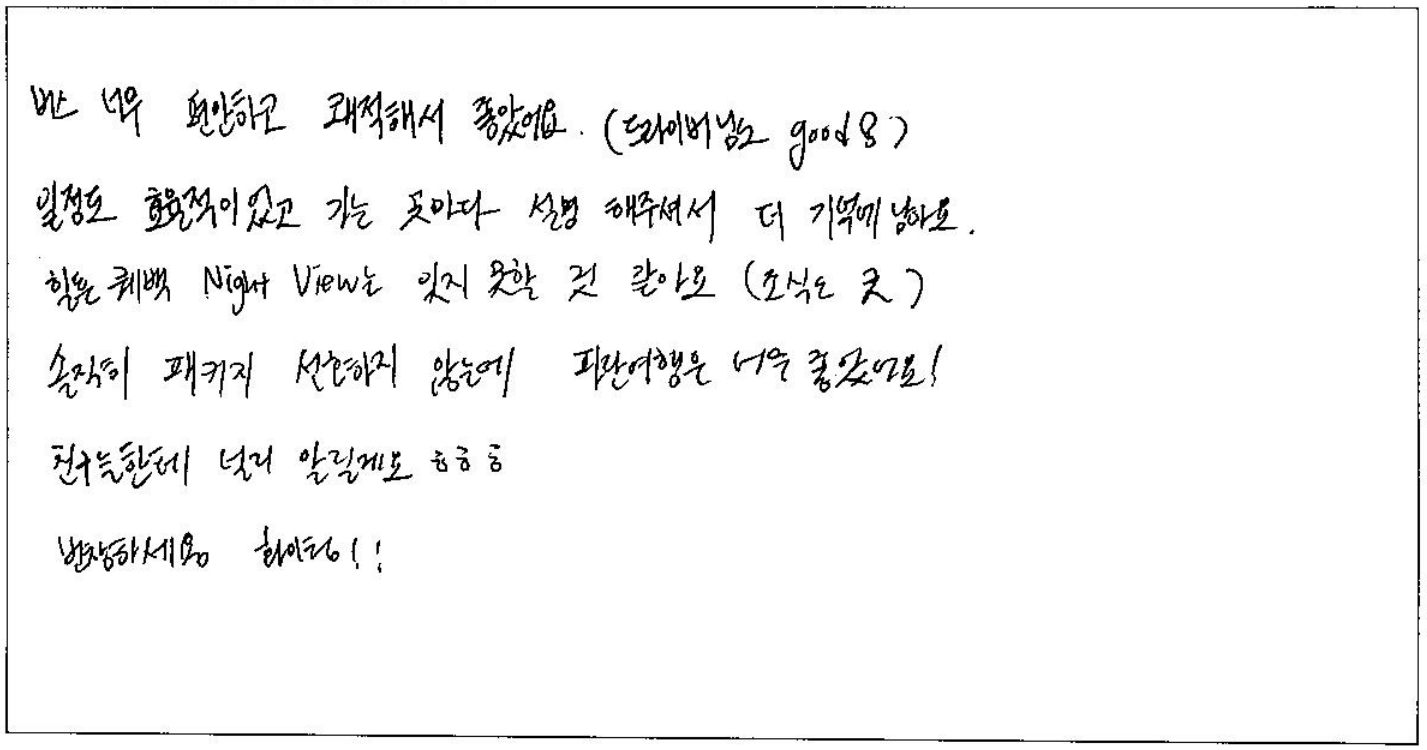 버스 너무 편안하고 쾌적해서 좋았어요. (드라이버님도 good 8)
일정도 효율적이었고 가는 곳마다 설명 해주셔서 더 기억에 남아요.
힐튼 퀘백 Night View는 잊지 못할 것 같아요 (조식도 굿)
솔직히 패키지 선호하지 않는데 파란여행은 너무 좋았어요!
친구들한테 널리 알릴게요 ㅎㅎㅎ
번창하세용 화이팅!!